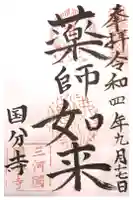 奉拝令和四年九月七日
薬師如来
国分寺
三河國
寺